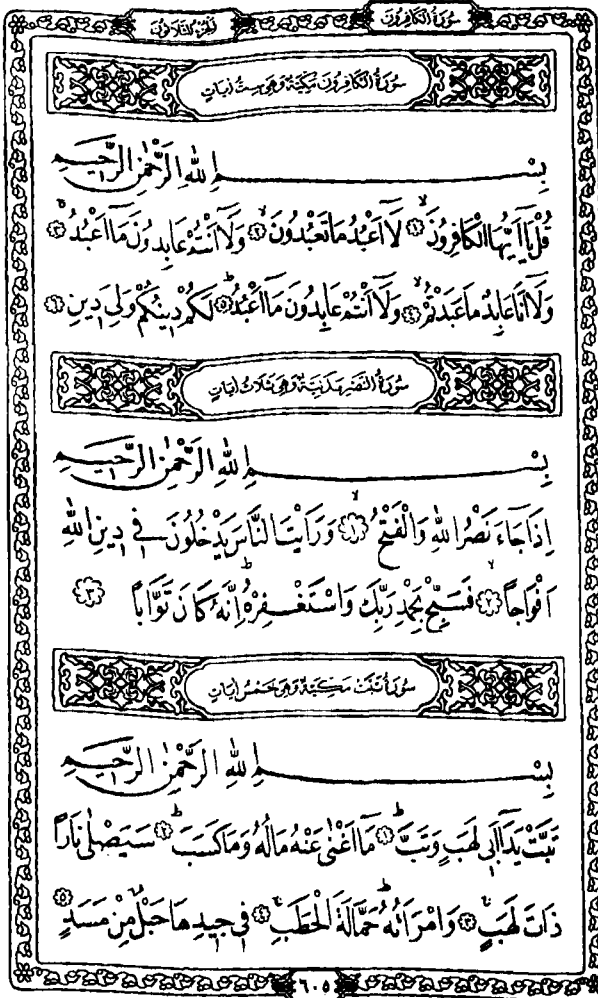 سُورَةُ الْكَافِرُونَ
اَلْجُزْءُ الثَّلَاثُونَ
سُورَةُ الْكَافِرُونَ مَكِّيَّةٌ وَهِىَ سِتُّ اٰيَاتٍ
بِسْمِ اللهِ الرَّحْمٰنِ الرَّحِيمِ
قُلْ يَٓا اَيُّهَا الْكَافِرُونَۙ ﴿١﴾ لَٓا اَعْبُدُ مَا تَعْبُدُونَۙ ﴿٢﴾ وَلَٓا اَنْتُمْ عَابِدُونَ مَٓا اَعْبُدُۚ ﴿٣﴾
وَلَٓا اَنَا عَابِدٌ مَا عَبَدْتُمْۙ ﴿٤﴾ وَلَٓا اَنْتُمْ عَابِدُونَ مَٓا اَعْبُدُۜ ﴿٥﴾ لَكُمْ دِينُكُمْ وَلِىَ دِينِ ﴿٦﴾
سُورَةُ النَّصْرِ مَدَنِيَّةٌ وَهِىَ ثَلَاثُ اٰيَاتٍ
بِسْمِ اللهِ الرَّحْمٰنِ الرَّحِيمِ
اِذَا جَٓاءَ نَصْرُ اللهِ وَالْفَتْحُۙ ﴿١﴾ وَرَاَيْتَ النَّاسَ يَدْخُلُونَ فِى دِينِ اللهِ
اَفْوَاجاًۙ ﴿٢﴾ فَسَبِّحْ بِحَمْدِ رَبِّكَ وَاسْتَغْفِرْهُۜ اِنَّهُ كَانَ تَوَّاباً ﴿٣﴾
سُورَةُ تَبَّتْ مَكِّيَّةٌ وَهِىَ خَمْسُ اٰيَاتٍ
بِسْمِ اللهِ الرَّحْمٰنِ الرَّحِيمِ
تَبَّتْ يَدَٓا اَبِى لَهَبٍ وَتَبَّۜ ﴿١﴾ مَٓا اَغْنٰى عَنْهُ مَالُهُ وَمَا كَسَبَۜ ﴿٢﴾ سَيَصْلٰى نَاراً
ذَاتَ لَهَبٍۚ ﴿٣﴾ وَامْرَاَتُهُۜ حَمَّالَةَ الْحَطَبِۚ ﴿٤﴾ فِى جِيدِهَا حَبْلٌ مِنْ مَسَدٍ ﴿٥﴾
٦٠٥